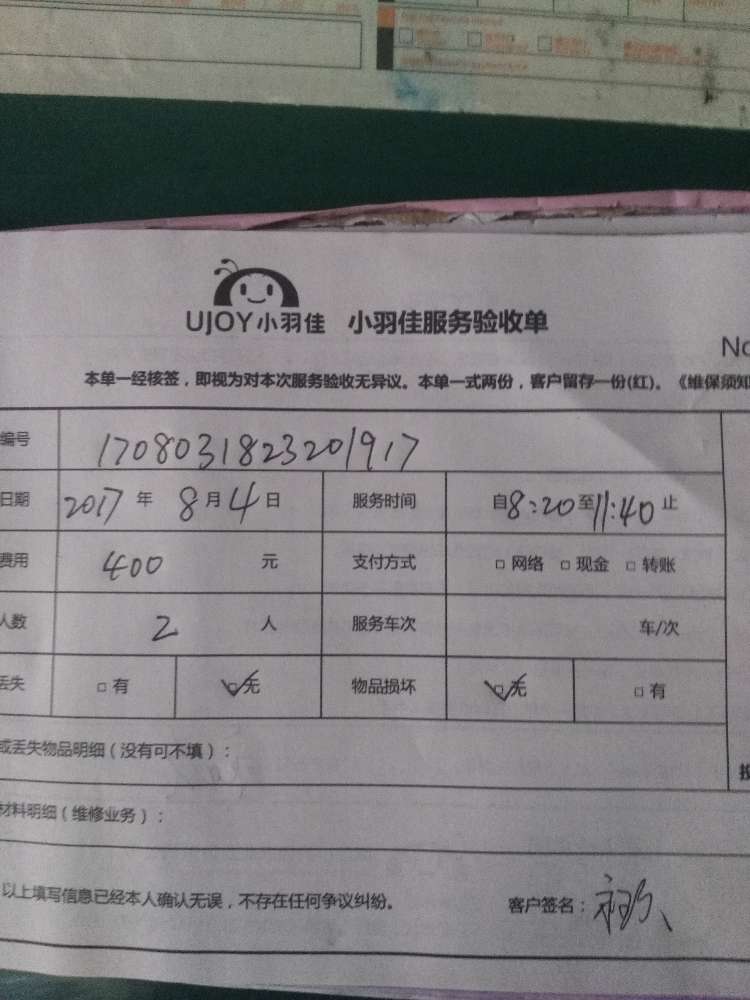 UJOY小羽佳 小羽佳服务验收单
No
本单一经核签，即视为对本次服务验收无异议。本单一式两份，客户留存一份(红)。《维保须知
编号 1708031823201917
日期 2017 年 8 月 4 日 服务时间 自8:20至11:40止
费用 400 元 支付方式 □ 网络 □ 现金 □ 转账
人数 2 人 服务车次 车/次
丢失 □ 有 ☑无 物品损坏 ☑无 □ 有
或丢失物品明细（没有可不填）：
材料明细（维修业务）：
以上填写信息已经本人确认无误，不存在任何争议纠纷。 客户签名：